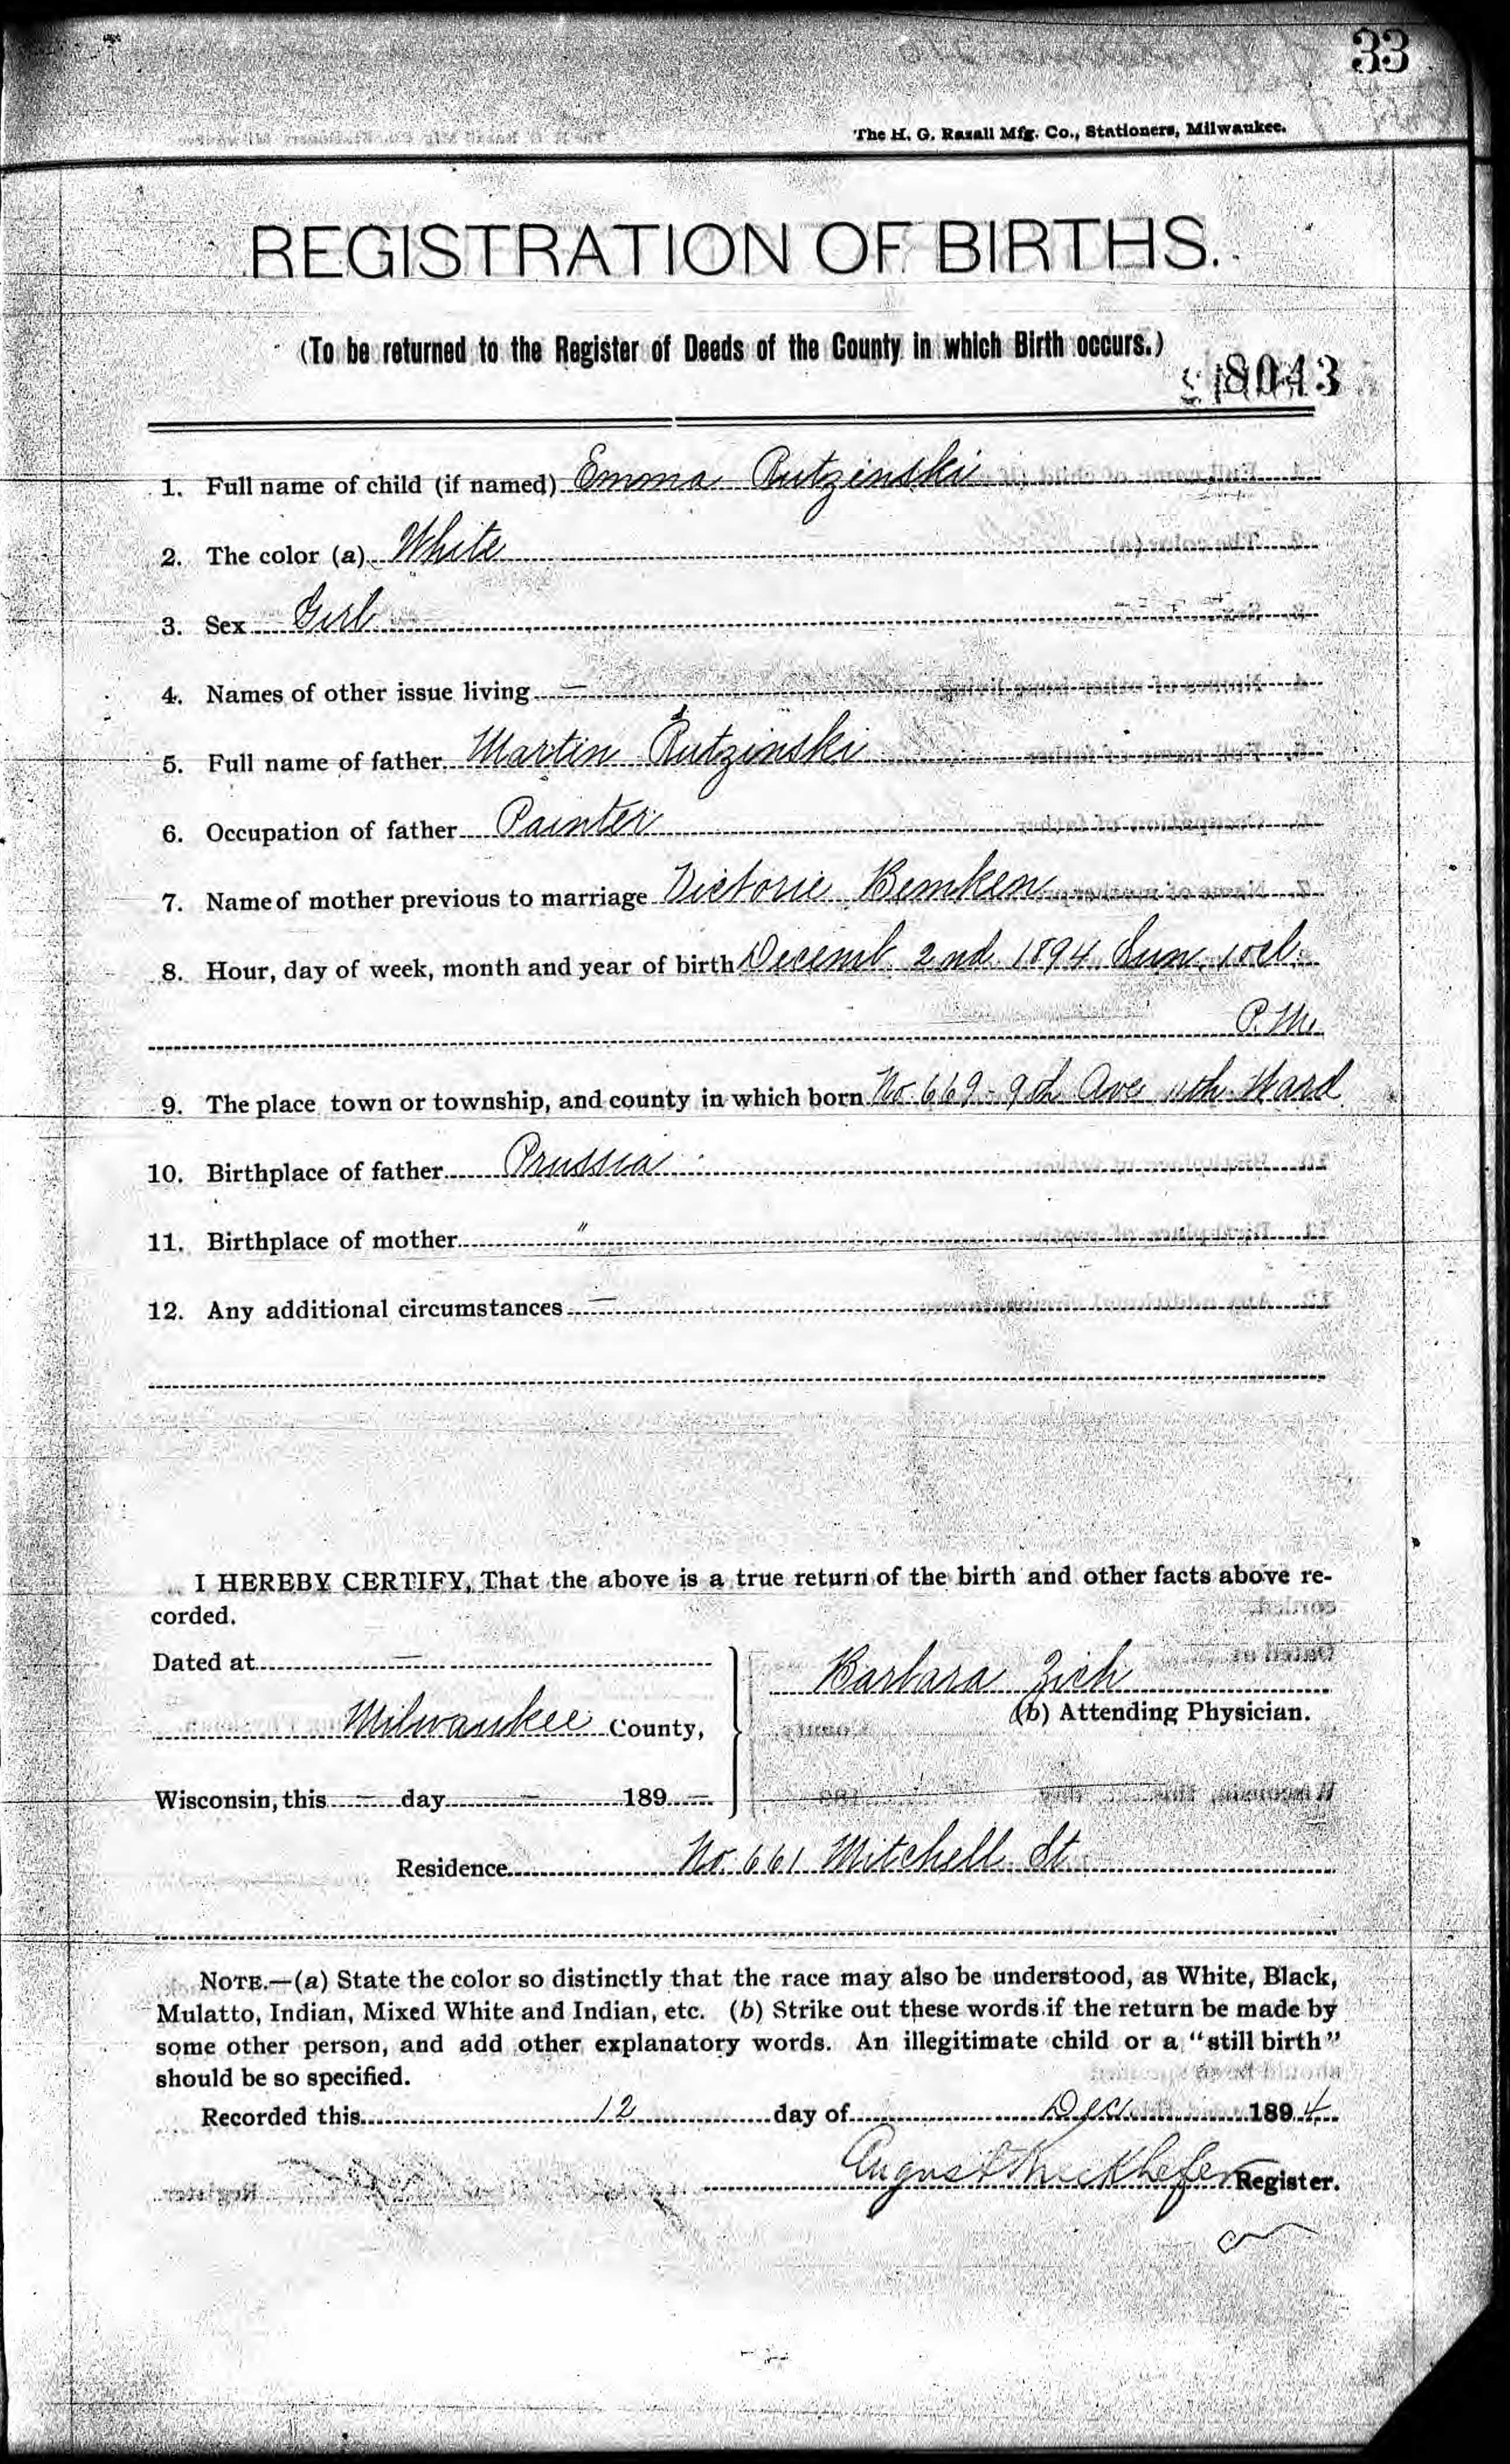 33
The H. G. Razall Mfg. Co., Stationers, Milwaukee.
REGISTRATION OF BIRTHS.
(To be returned to the Register of Deeds of the County in which Birth occurs.)
1. Full name of child (if named) Emma Rutzinski
2. The color (a) White
3. Sex Girl
4. Names of other issue living —
5. Full name of father Martin Rutzinski
6. Occupation of father Painter
7. Name of mother previous to marriage Victorie Bemken
8. Hour, day of week, month and year of birth Decemb. 2nd 1894 Sun. 1 ocl.
P.M.
9. The place town or township, and county in which born No. 669 - 9th Ave 11th Ward
10. Birthplace of father Prussia
11. Birthplace of mother "
12. Any additional circumstances —
I HEREBY CERTIFY, That the above is a true return of the birth and other facts above re-
corded.
Dated at —
Barbara Zich
(b) Attending Physician.
Milwaukee County,
Wisconsin, this — day — 189 —
Residence No. 661 Mitchell St
NOTE.—(a) State the color so distinctly that the race may also be understood, as White, Black,
Mulatto, Indian, Mixed White and Indian, etc. (b) Strike out these words if the return be made by
some other person, and add other explanatory words. An illegitimate child or a "still birth"
should be so specified.
Recorded this 12 day of Dec 1894
August Register.